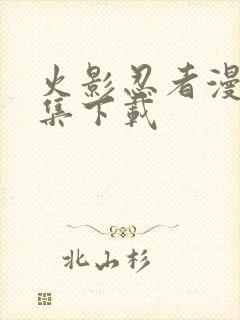 火影忍者漫
集下载
北山杉